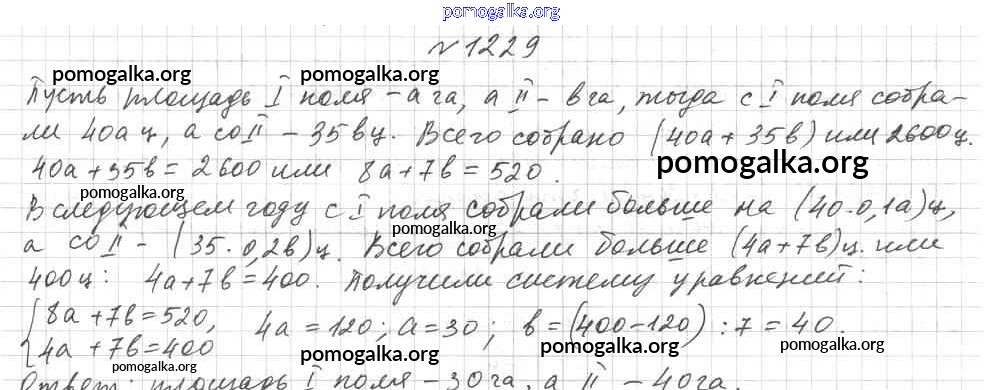 pomogalka.org
№1229
pomogalka.org pomogalka.org
Пусть площадь I поля – а га, а II – в га, тогда с I поля собра-
ли 40а ц, а со II – 35вц. Всего собрано (40а + 35в) или 2600ц.
40а + 35в = 2600 или 8а + 7в = 520.
pomogalka.org
pomogalka.org
В следующем году с I поля собрали больше на (40·0,1а)ц,
pomogalka.org
а со II – (35·0,2в)ц. Всего собрали больше (4а+7в)ц. или
400ц: 4а+7в = 400. Получили систему уравнений:
{8а + 7в = 520,
4а + 7в = 400
4а = 120; а = 30; в = (400 – 120) : 7 = 40.
pomogalka.org pomogalka.org
Ответ: площадь I поля – 30га, а II – 40га.